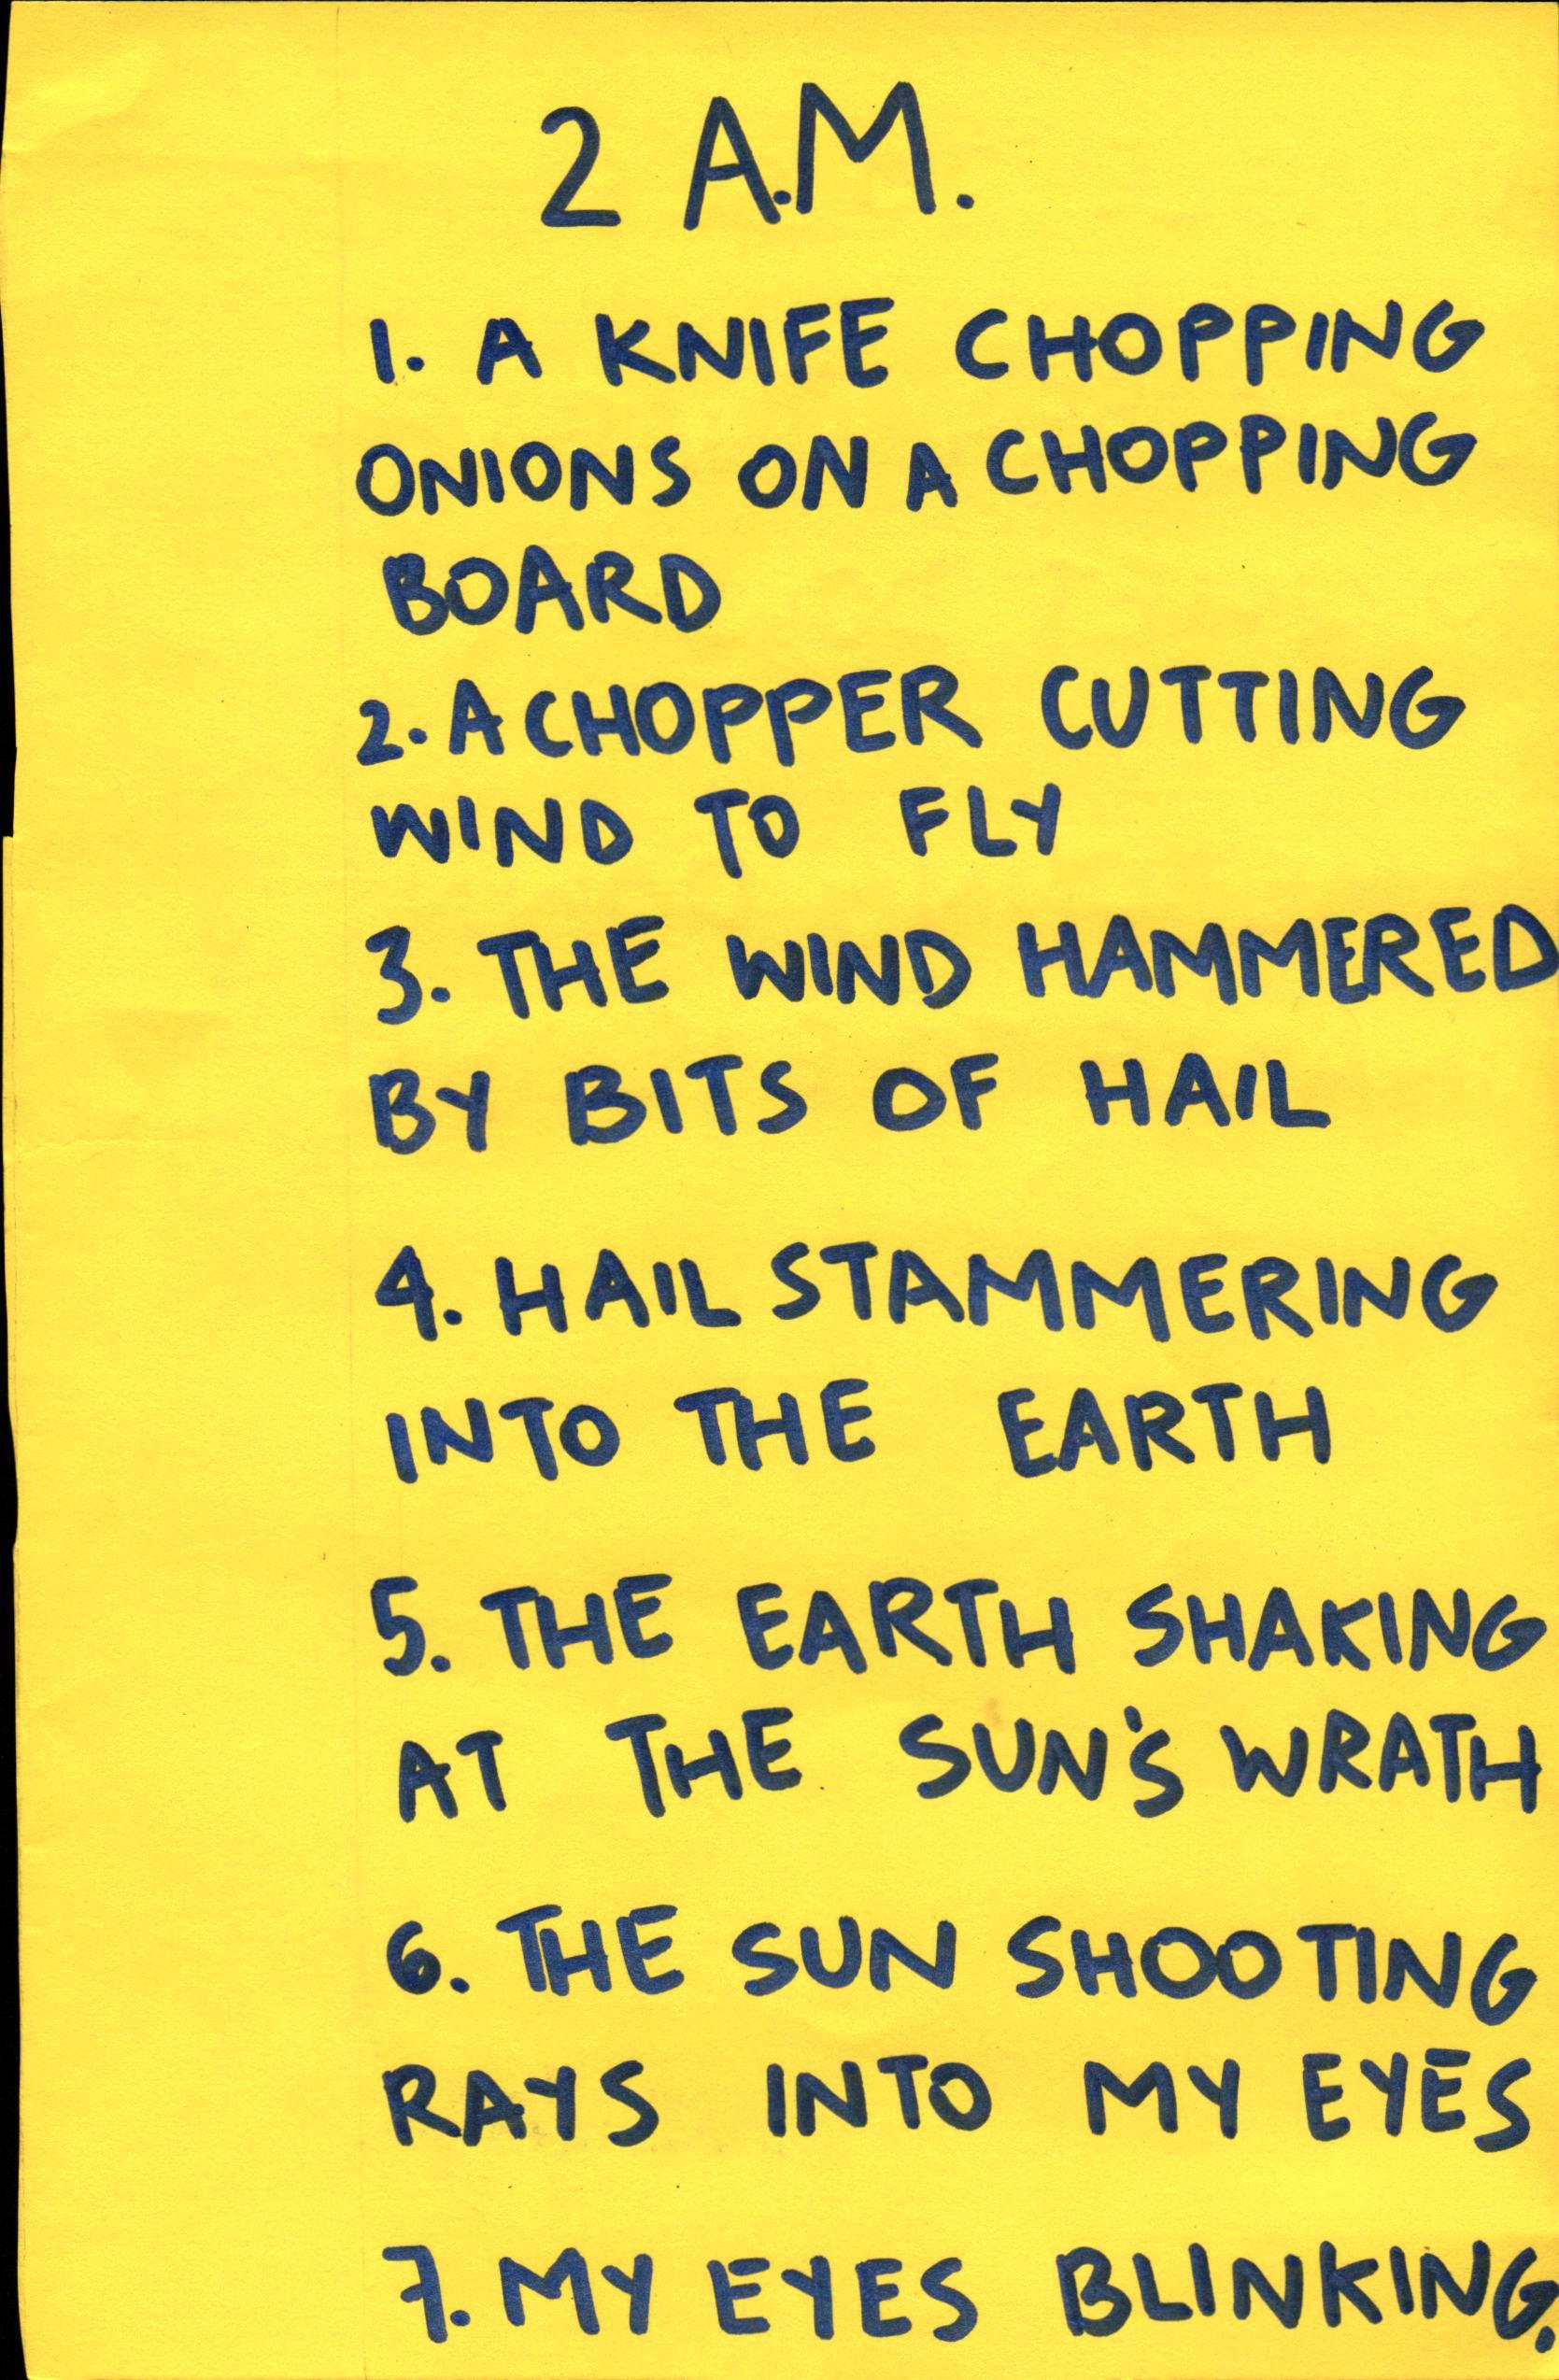 2 A.M.
1. A KNIFE CHOPPING
ONIONS ON A CHOPPING
BOARD
2. A CHOPPER CUTTING
WIND TO FLY
3. THE WIND HAMMERED
BY BITS OF HAIL
4. HAIL STAMMERING
INTO THE EARTH
5. THE EARTH SHAKING
AT THE SUN'S WRATH
6. THE SUN SHOOTING
RAYS INTO MY EYES
7. MY EYES BLINKING.